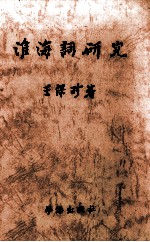 淮海詞研究
王保珍著
學海出版社